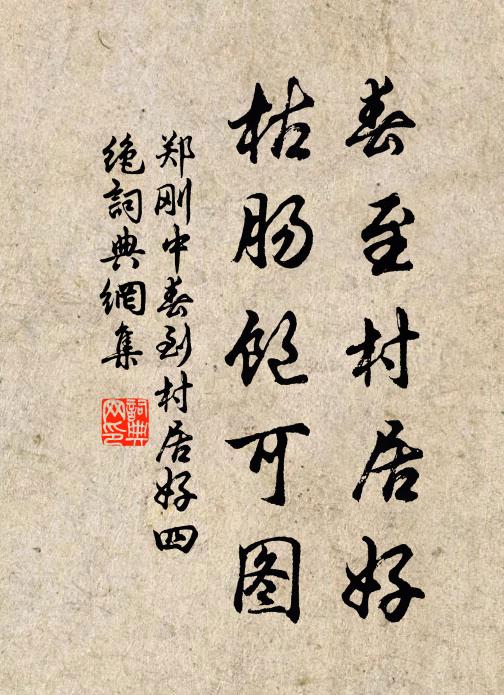 春至村居好
枯肠饱可图
郑刚中春到村居好四
绝词典網集
詞典
网印